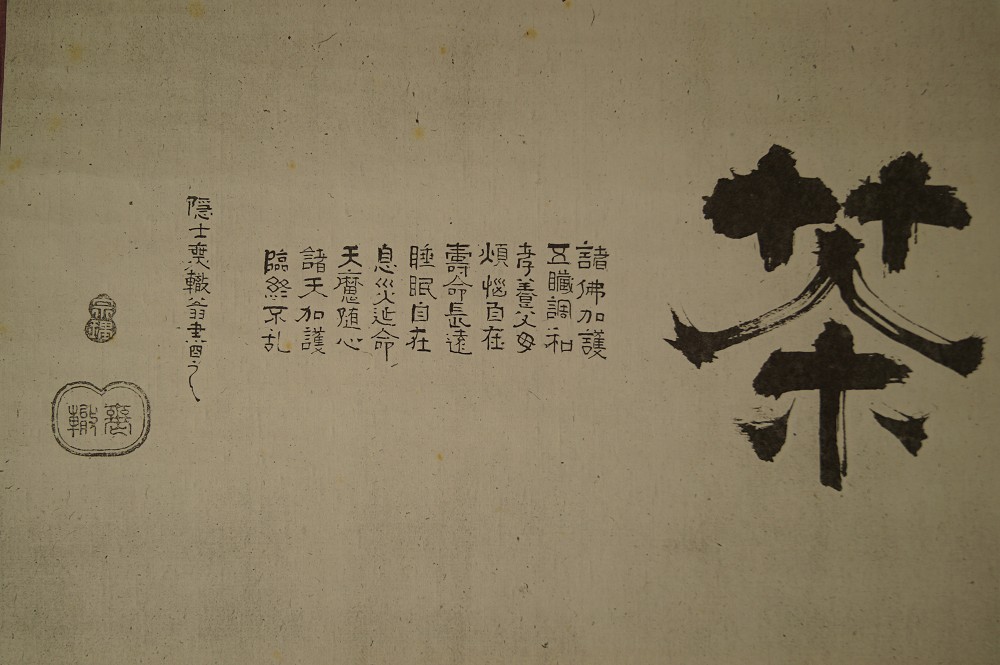 茶
諸佛加護
五臓調和
孝養父母
煩惱自在
壽命長遠
睡眠自在
息災延命
天魔随心
諸天加護
臨終不乱
隠士 轍翁書